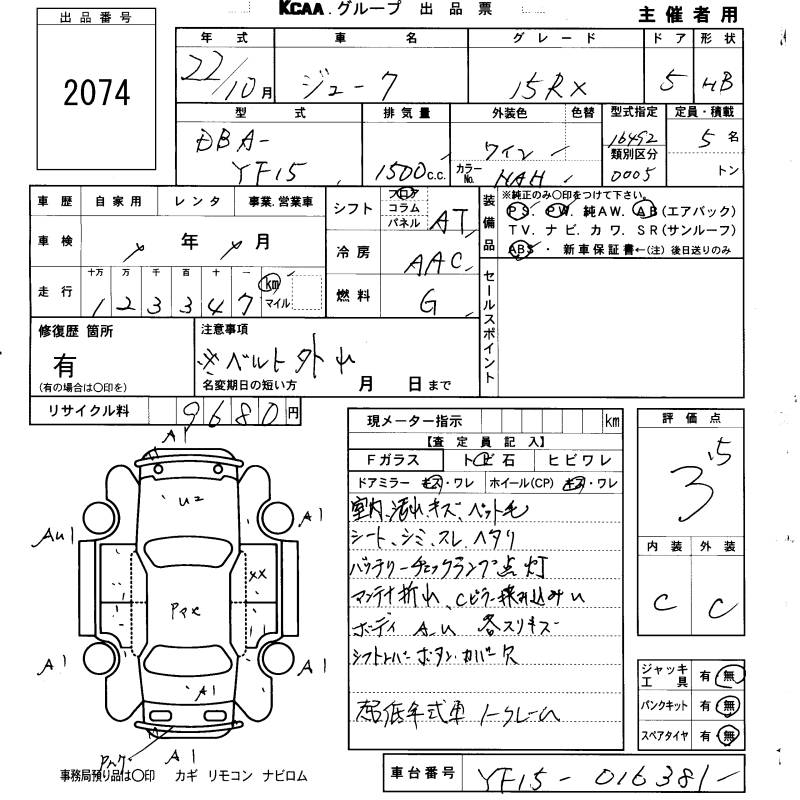 出品番号
2074
KCAA.グループ 出品票
主催者用
年式 車名 グレード ドア 形状
22/10月 ジューク 15RX 5 HB
型式 排気量 外装色 色替 型式指定 定員・積載
DBA-
YF15 1500c.c. ワイン 16492 5名
カラーNo. NAH 類別区分 0005 トン
車歴 自家用 レンタ 事業.営業車
車検 年 月
走行 十万 万 千 百 十 一
1 2 3 3 4 7 km マイル
シフト フロア コラム パネル AT
冷房 AAC
燃料 G
装備品 ※純正のみ○印をつけて下さい。
PS. PW. 純AW. AB(エアバック)
TV. ナビ. カワ. SR(サンルーフ)
ABS・新車保証書←(注)後日送りのみ
セールスポイント
修復歴 箇所
有
(有の場合は○印を)
注意事項
※ベルト外れ
名変期日の短い方 月 日まで
リサイクル料 9680円
現メーター指示 km
【査定員記入】
Fガラス トビ石 ヒビワレ
ドアミラー キズ・ワレ ホイール(CP) キズ・ワレ
室内、汚れキズ、ペット毛
シート、シミ、スレ、ヘタリ
バッテリーチェックランプ点灯
アンテナ折れ、Cピラー揉み込みU
ボーディ A-U 各スリキズ
シフトレバーボタン.カバー欠
超低年式車 ノークレーム
評価点
3.5
内装 外装
C C
ジャッキ工具 有 無
パンクキット 有 無
スペアタイヤ 有 無
A1
U2
AU1
A1
XX
A1
A1
A1
A1
事務局預り品は○印 カギ リモコン ナビロム
車台番号 YF15-016381